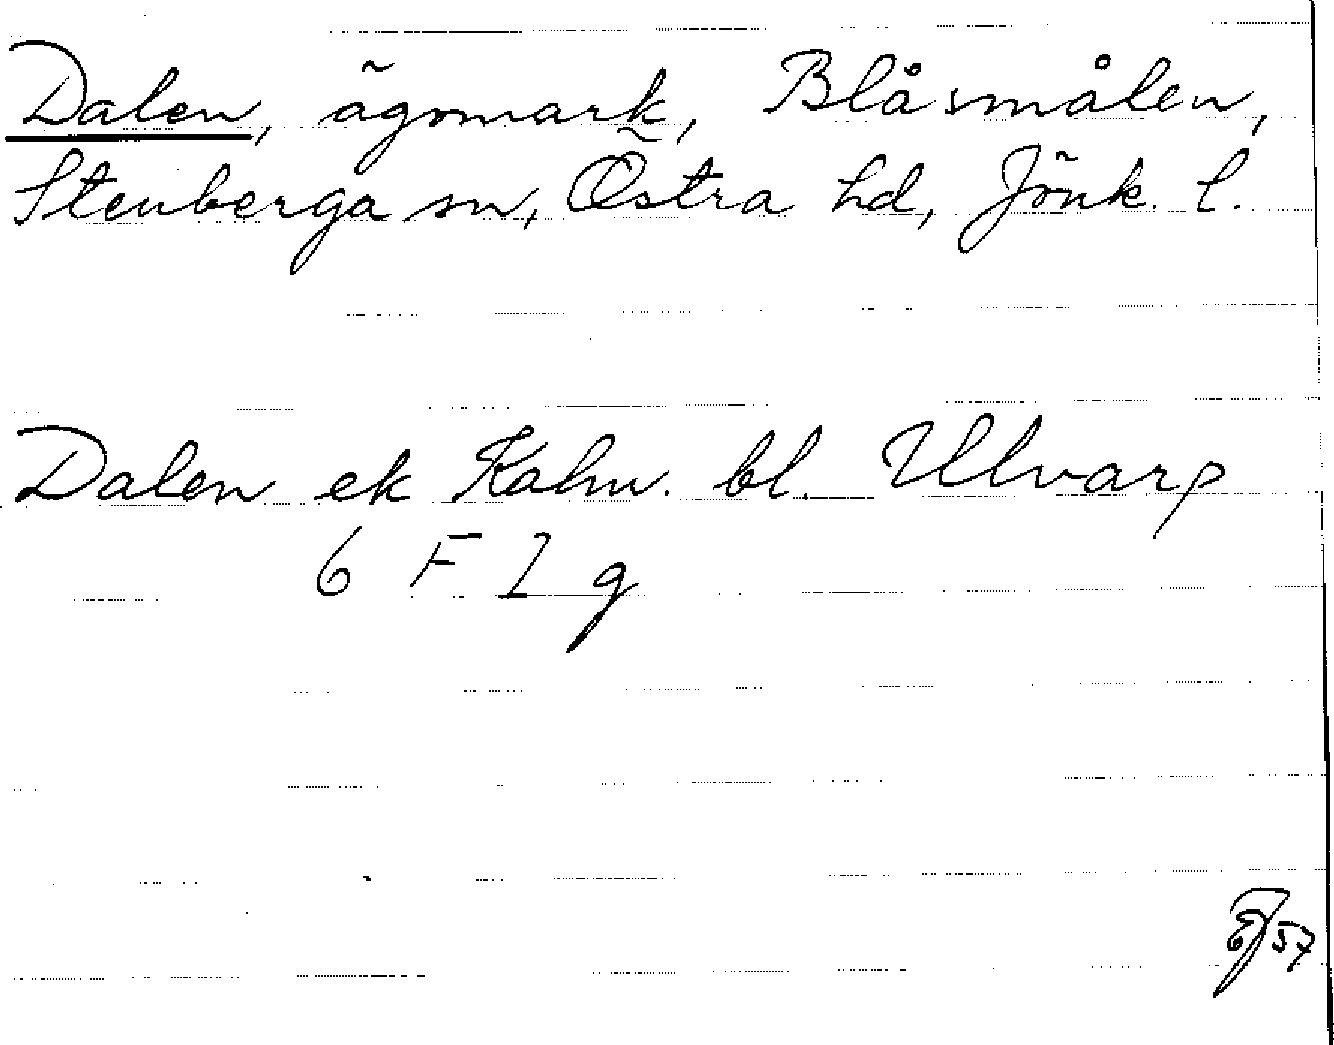 Dalen, ägomark, Blåsmålen,
Stenberga sn, Östra hd, Jönk. l.
Dalen ek Kalm. bl. Ulvarp
6 F 2 g
57